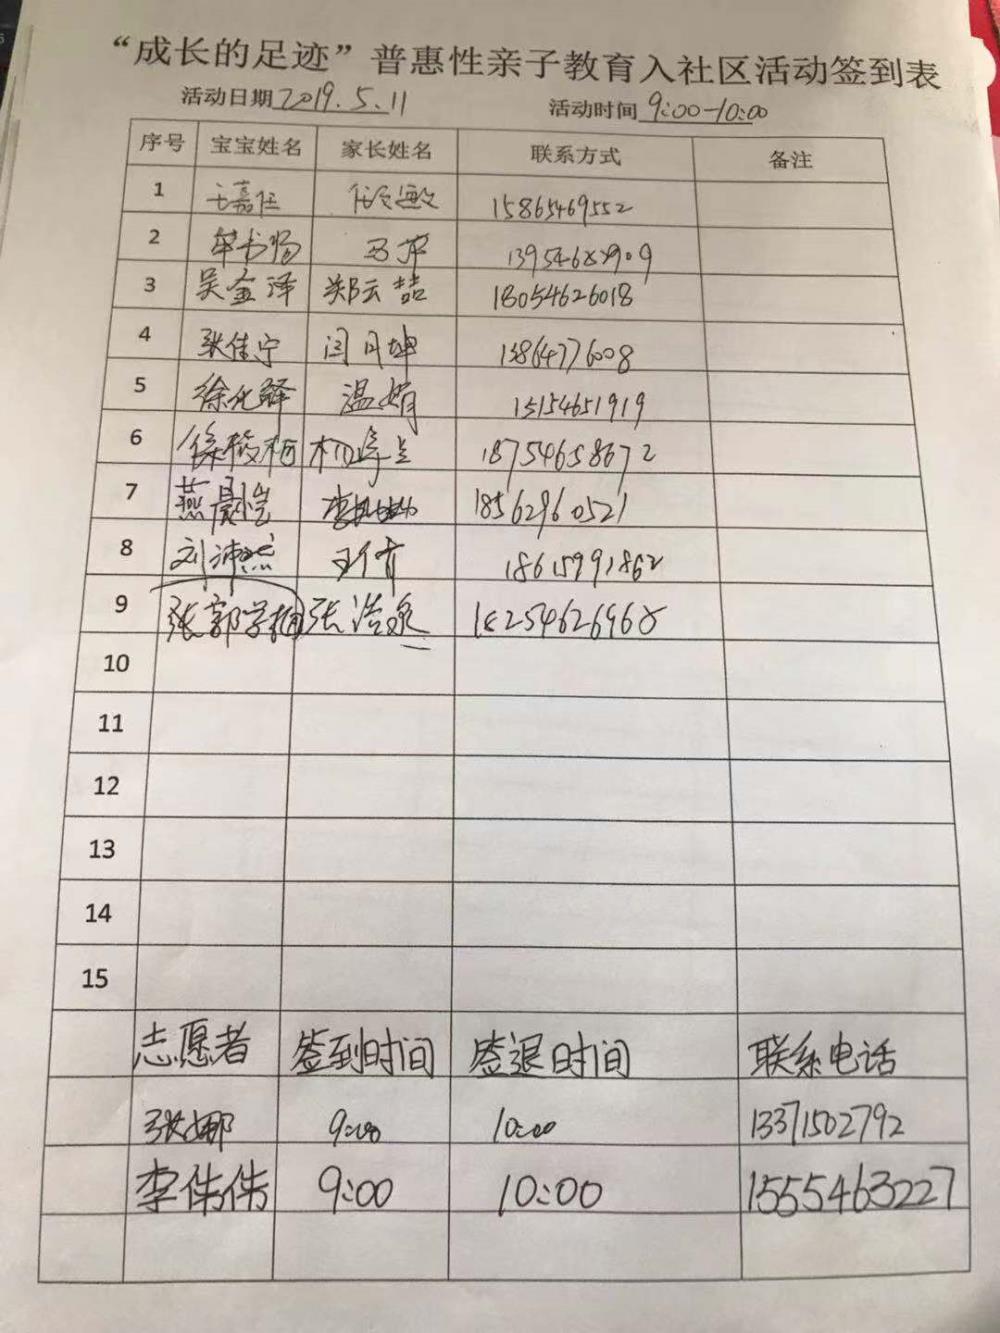 “成长的足迹”普惠性亲子教育入社区活动签到表
活动日期 2019.5.11 活动时间 9:00-10:00
序号 宝宝姓名 家长姓名 联系方式 备注
1 王嘉任 15865469552
2 单书扬 马萍
3 吴金泽 郑云喆 18054626018
4 张佳宁 闫月坤 15864776008
5 徐化铎 温娟 15154651919
6 徐梭柯 18754658672
7 燕晨恺 18562960521
8 刘沛然 王倩 18615991862
9 张郭学楠 张浩泉
10
11
12
13
14
15
志愿者 签到时间 签退时间 联系电话
张娜 9:00 10:00 13371502792
李伟伟 9:00 10:00 1555463227